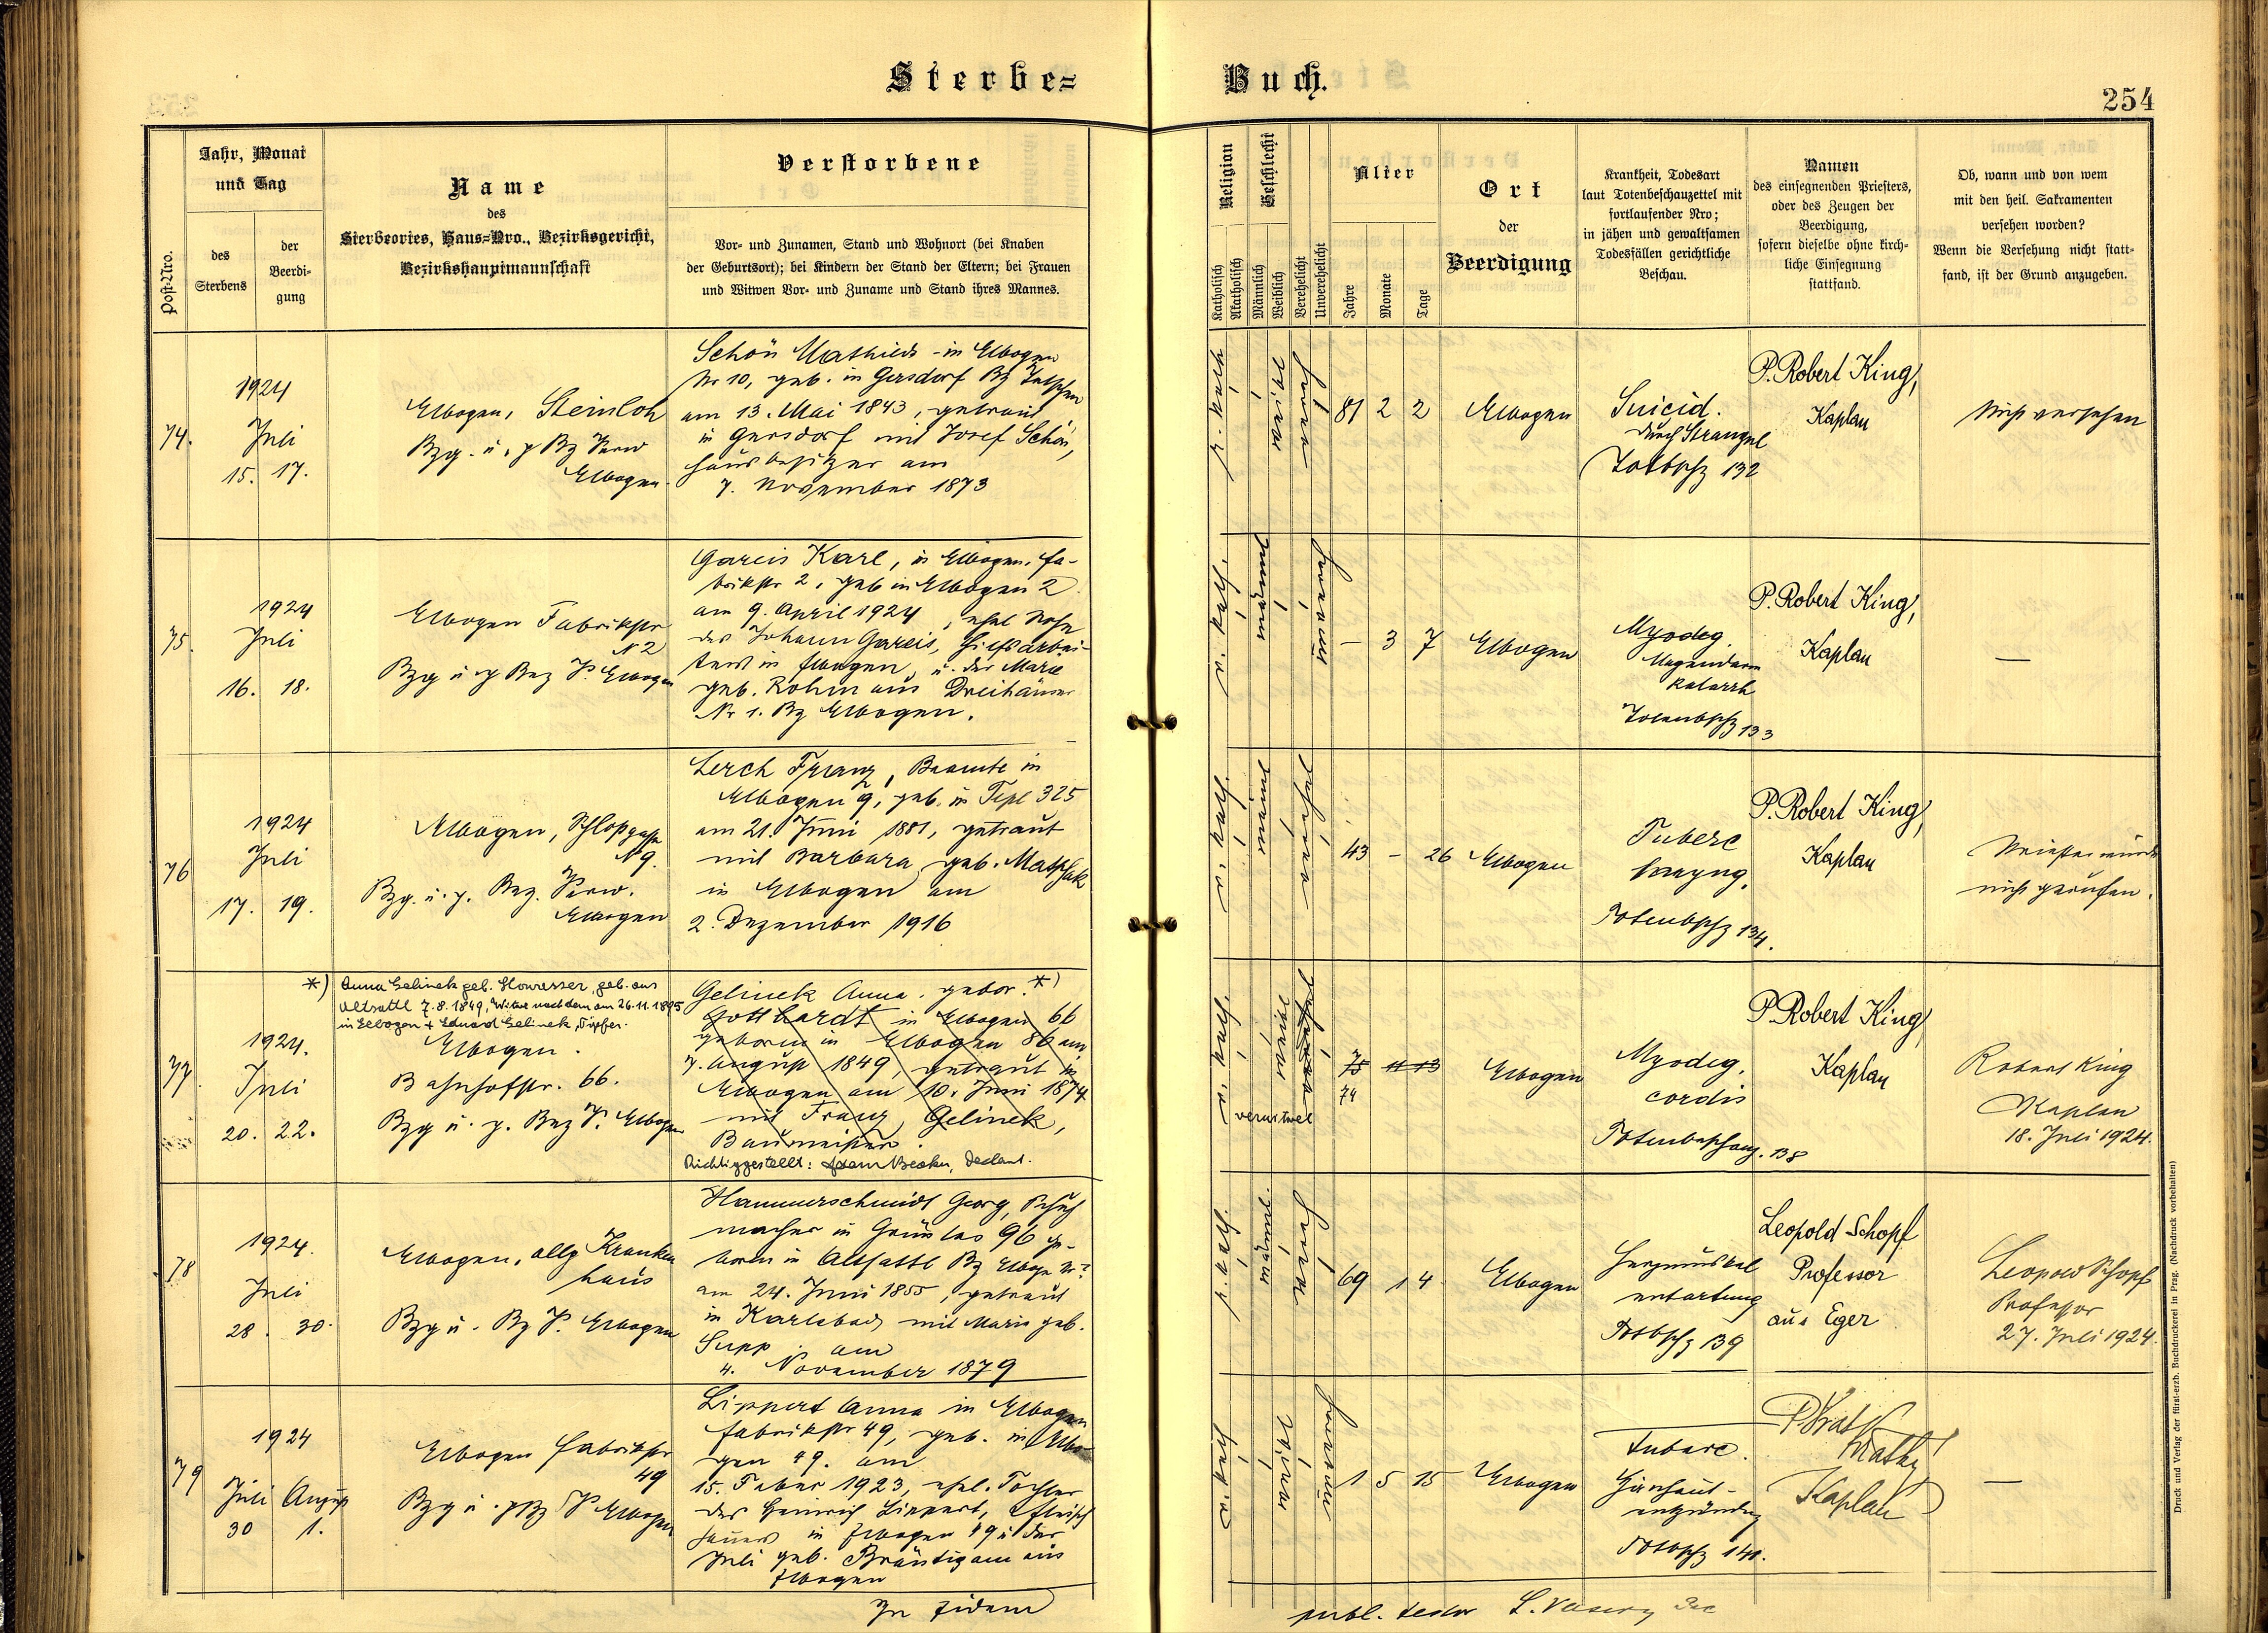 Sterbe=
Buch.
254
Post=Nro.
Jahr, Monat
und Tag
des
Sterbens
der
Beerdi-
gung
Name
des
Sterbeortes, Haus=Nro., Bezirksgericht,
Bezirkshauptmannschaft
Verstorbene
Vor= und Zunamen, Stand und Wohnort (bei Knaben
der Geburtsort); bei Kindern der Stand der Eltern; bei Frauen
und Witwen Vor= und Zuname und Stand ihres Mannes.
Religion
Katholisch
Akatholisch
Geschlecht
Männlich
Weiblich
Verehelicht
Unverehelicht
Alter
Jahre
Monate
Tage
Ort
der
Beerdigung
Krankheit, Todesart
laut Totenbeschauzettel mit
fortlaufender Nro;
in jähen und gewaltsamen
Todesfällen gerichtliche
Beschau.
Namen
des einsegnenden Priesters,
oder des Zeugen der
Beerdigung,
sofern dieselbe ohne kirch-
liche Einsegnung
stattfand.
Ob, wann und von wem
mit den heil. Sakramenten
versehen worden?
Wenn die Versehung nicht statt-
fand, ist der Grund anzugeben.
74.
1924
Juli
15. 17.
Elbogen, Steinloh
Elbogen
Schön Mathilde - in Elbogen
Nr 10, geb. in Gersdorf Bz
am 13. Mai 1843, getraut
in Gersdorf mit Josef Schön,
Hausbesitzer am
7. November 1873
81 2 2
Elbogen
Suicid.
durch Strangul
Totbschz 132
P. Robert King,
Kaplan
Nicht versehen
75.
1924
Juli
16. 18.
Elbogen Fabrikstr
N 2
Bzg u. Bez Elbogen
Gareis Karl, in Elbogen, Fa-
brikstr 2, geb in Elbogen 2
am 9. April 1924, ehel Sohn
des Johann Gareis, Hilfsarbei-
ters in Elbogen, u. der Marie
geb. Rohm aus Dreihäuser
Nr 1. Bz Elbogen.
— 3 7
Elbogen
Myodeg.
Magendarm
katarrh
Totenbschz 133
P. Robert King,
Kaplan
—
76
1924
Juli
17. 19.
Elbogen, Schloßgasse
N 9.
Bzg. u. Bez.
Elbogen
Lerch Franz, Beamte in
Elbogen 9, geb. in Tepl 325
am 21. Juni 1881, getraut
mit Barbara geb.
in Elbogen am
2. Dezember 1916
43 - 26
Elbogen
Tuberc
laryng.
Totenbschz 134.
P. Robert King,
Kaplan
Priester wurde
nicht gerufen.
77
*) Anna Gelinek geb. geb. aus
Altsattl 7.8.1849, Witwe nach dem am 26.11.1895
in Elbogen + Eduard Gelinek, Töpfer.
1924.
Juli
20. 22.
Elbogen.
Bahnhofstr. 66.
Bzg u. Bez Elbogen
Gelinek Anna, gebor. *)
Gotthardt in Elbogen 66
geboren in Elbogen 86 am
7. August 1849, getraut in
Elbogen am 10. Juni 1874
mit Franz Gelinek,
Baumeister.
Richtiggestellt: Dechant.
verwitwet
75 11 13
74
Elbogen
Myodeg.
cordis
Totenbeschauz. 138
P. Robert King,
Kaplan
Robert King
Kaplan
18. Juli 1924.
78
1924.
Juli
28. 30.
Elbogen, allg Kranken
haus
Bzg u. Bz Elbogen
Hammerschmidt Georg, Schuh
macher in Grünlas 96 ge-
boren in Altsattl Bz Elbogen Nr ?
am 24. Juni 1855, getraut
in Karlsbad mit Marie geb.
Supp am
4. November 1879
69 1 4
Elbogen
Herzmuskel
entartung
Totbschz 139
Leopold Schopf
Professor
aus Eger
Leopold Schopf
Professor
27. Juli 1924.
79
1924
Juli August
30 1.
Elbogen Fabrikstr
49
Elbogen
Lippert Anna in Elbogen
Fabrikstr 49, geb. in Elbo-
gen 49. am
15. Feber 1923, ehel. Tochter
des Heinrich Lippert, Fleisch
hauers in Elbogen 49 u. der
Juli geb. Bräutigam aus
Elbogen
1 5 15
Elbogen
Tuberc.
Hirnhaut-
entzündung
Totbschz 140.
Kaplan
—
In fidem
publ. Dec
Druck und Verlag der fürst-erzb. Buchdruckerei in Prag. (Nachdruck vorbehalten)